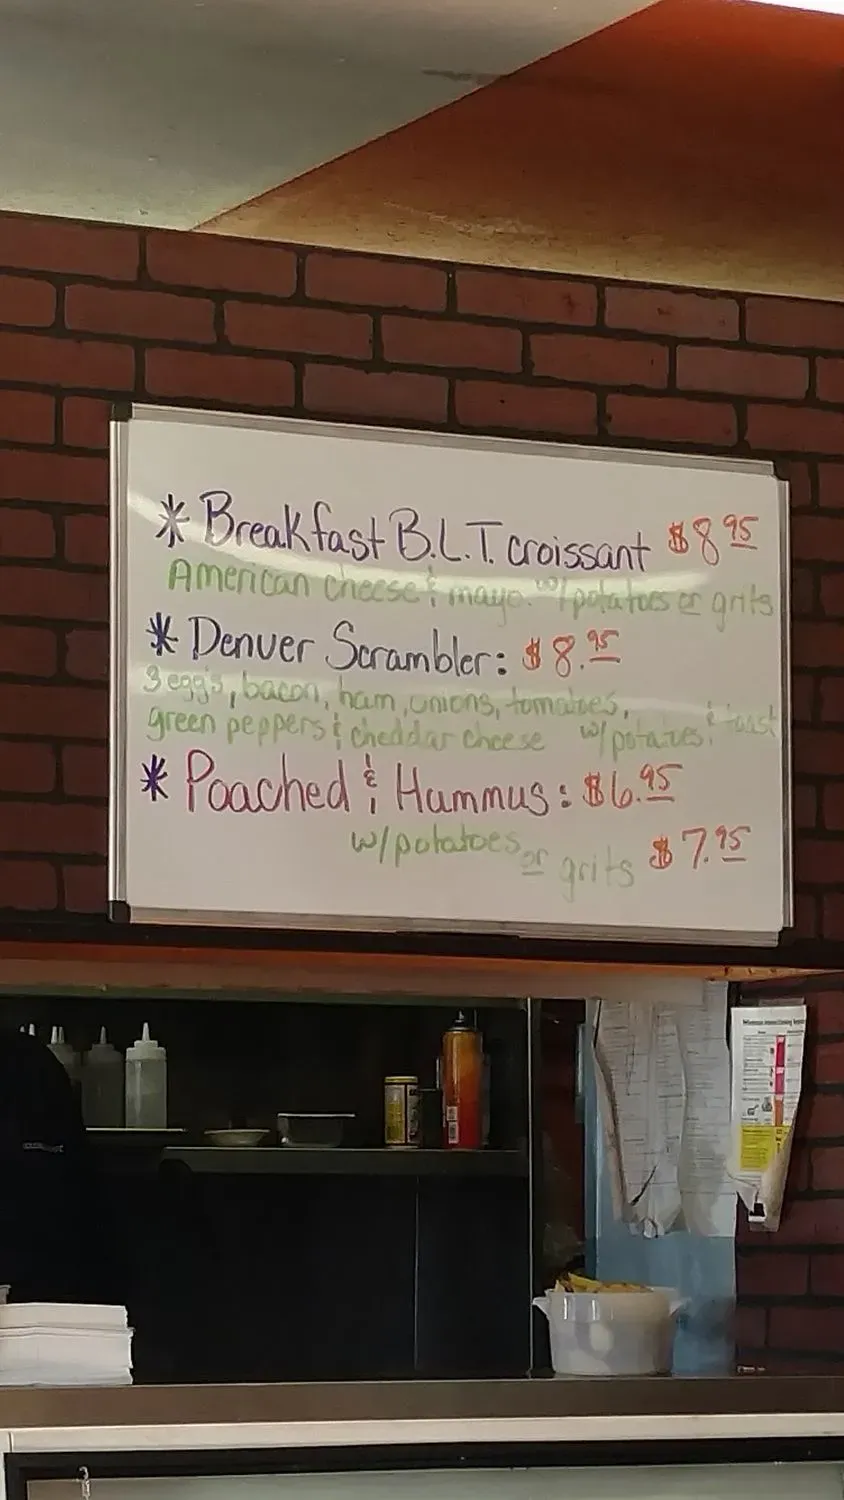 * Breakfast B.L.T. croissant $8 95
American cheese & mayo. w/potatoes or grits
* Denver Scrambler: $8.95
3 egg's, bacon, ham, onions, tomatoes,
green peppers & cheddar cheese w/potatoes & toast
* Poached & Hummus: $6.95
w/potatoes or grits $7.95